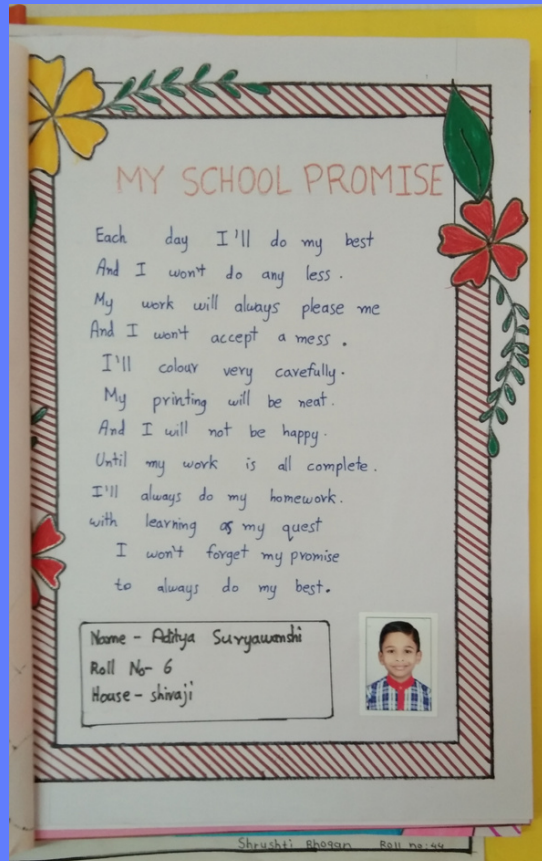 MY SCHOOL PROMISE
Each day I'll do my best
And I won't do any less.
My work will always please me
And I won't accept a mess.
I'll colour very carefully.
My printing will be neat.
And I will not be happy.
Until my work is all complete.
I'll always do my homework.
with learning as my quest
I won't forget my promise
to always do my best.
Name - Aditya Suryawanshi
Roll No - 6
House - shivaji
Shrushti Bhogan Roll no:44